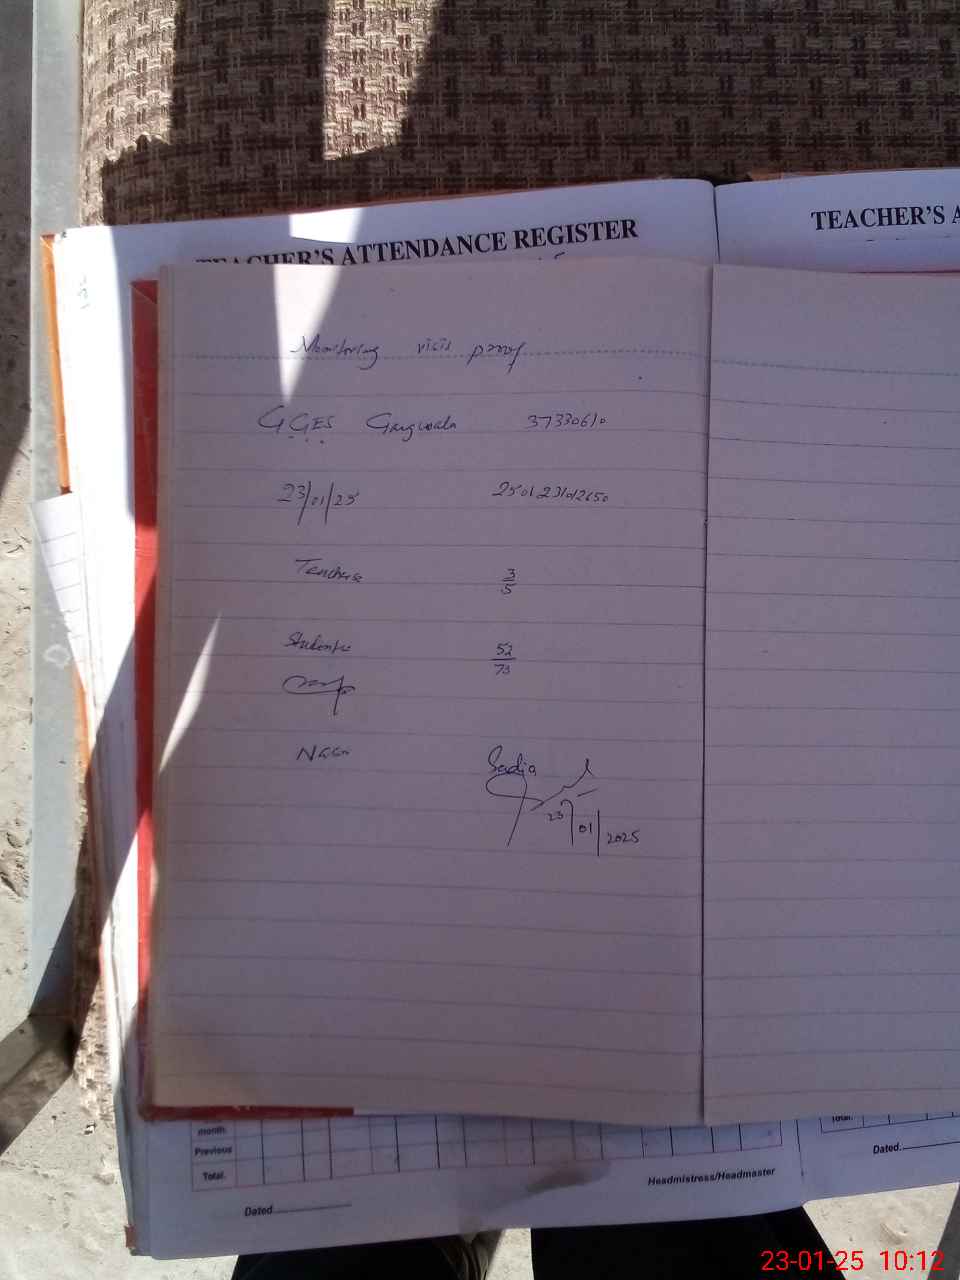 TEACHER'S ATTENDANCE REGISTER
TEACHER'S A
Monitoring visit proof
GGES Gangwala 37330610
23/01/25
Teachers 3/5
Students 52/73
Sadia
23/01/2025
month.
Previous
Total.
Total.
Headmistress/Headmaster
Dated
Dated
23-01-25 10:12